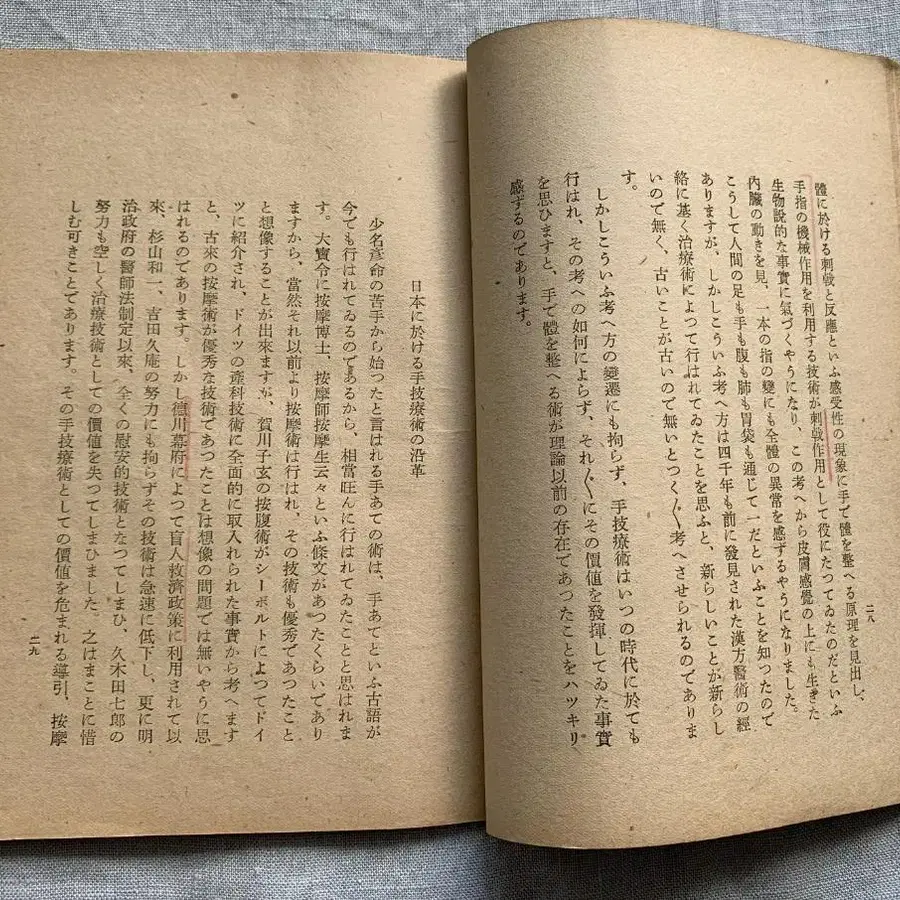 體に於ける刺戟と反應といふ感受性の現象に手で體を整へる原理を見出し、
手指の機械作用を利用する技術が刺戟作用として役にたつてゐたのだといふ
生物說的な事實に氣づくやうになり、この考へから皮膚感覺の上にも生きた
內臟の動きを見、一本の指の變にも全體の異常を感ずるやうになりました。
こうして人間の足も手も腹も肺も胃袋も通じて一だといふことを知つたので
ありますが、しかしこういふ考へ方は四千年も前に發見された漢方醫術の經
絡に基く治療術によつて行はれてゐたことを思ふと、新らしいことが新らし
いので無く、古いことが古いので無いとつく〴〵考へさせられるのでありま
す。
しかしこういふ考へ方の變遷にも拘らず、手技療術はいつの時代に於ても
行はれ、その考への如何によらず、それ〴〵にその價値を發揮してゐた事實
を思ひますと、手で體を整へる術が理論以前の存在であつたことをハツキリ
感ずるのであります。
二八
日本に於ける手技療術の沿革
少名彥命の苦手から始つたと言はれる手あての術は、手あてといふ古語が
今でも行はれてゐるのであるから、相當旺んに行はれてゐたことと思はれま
す。大寶令に按摩博士、按摩師按摩生云々といふ條文があつたくらいであり
ますから、當然それ以前より按摩術は行はれ、その技術も優秀であつたこと
と想像することが出來ますが、賀川子玄の按腹術がシーボルトによつてドイ
ツに紹介され、ドイツの產科技術に全面的に取入れられた事實から考へます
と、古來の按摩術が優秀な技術であつたことは想像の問題では無いやうに思
はれるのであります。しかし德川幕府によつて盲人救濟政策に利用されて以
來、杉山和一、吉田久庵の努力にも拘らずその技術は急速に低下し、更に明
治政府の醫師法制定以來、全くの慰安的技術となつてしまひ、久木田七郎の
努力も空しく治療技術としての價値を失つてしまひました 之はまことに惜
しむ可きことであります。その手技療術としての價値を危まれる導引、按摩
二九